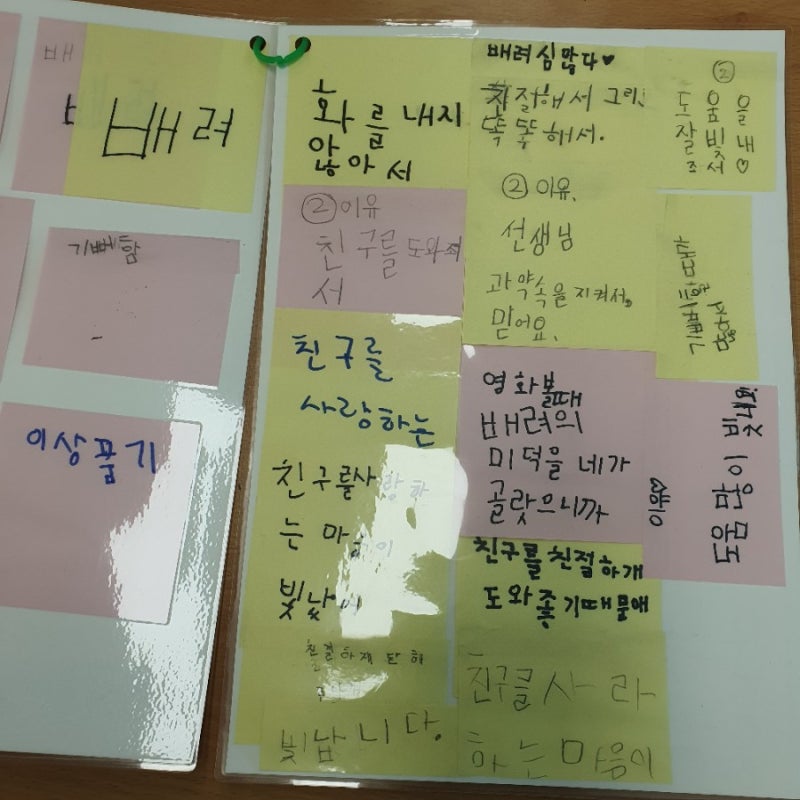 배
배려
기뻐함
이상품기
화를 내지
않아서
② 이유
친구를 도와줘
서
친구를
사랑하는
친구를 사랑하
는 마음이
빛났어
친절하게 대해
빛납니다.
배려심많다♥
친절해서 그리
똑똑해서.
② 이유.
선생님
과 약속을 지켜서
믿어요.
영화볼때
배려의
미덕을 네가
골랏으니까
친구를 친절하개
도와좋기때물애
친구를 사라
하는 마음이
②
도움을
잘빛내
조서♡
기뻐함도
많아서
도움 많이 빛내요